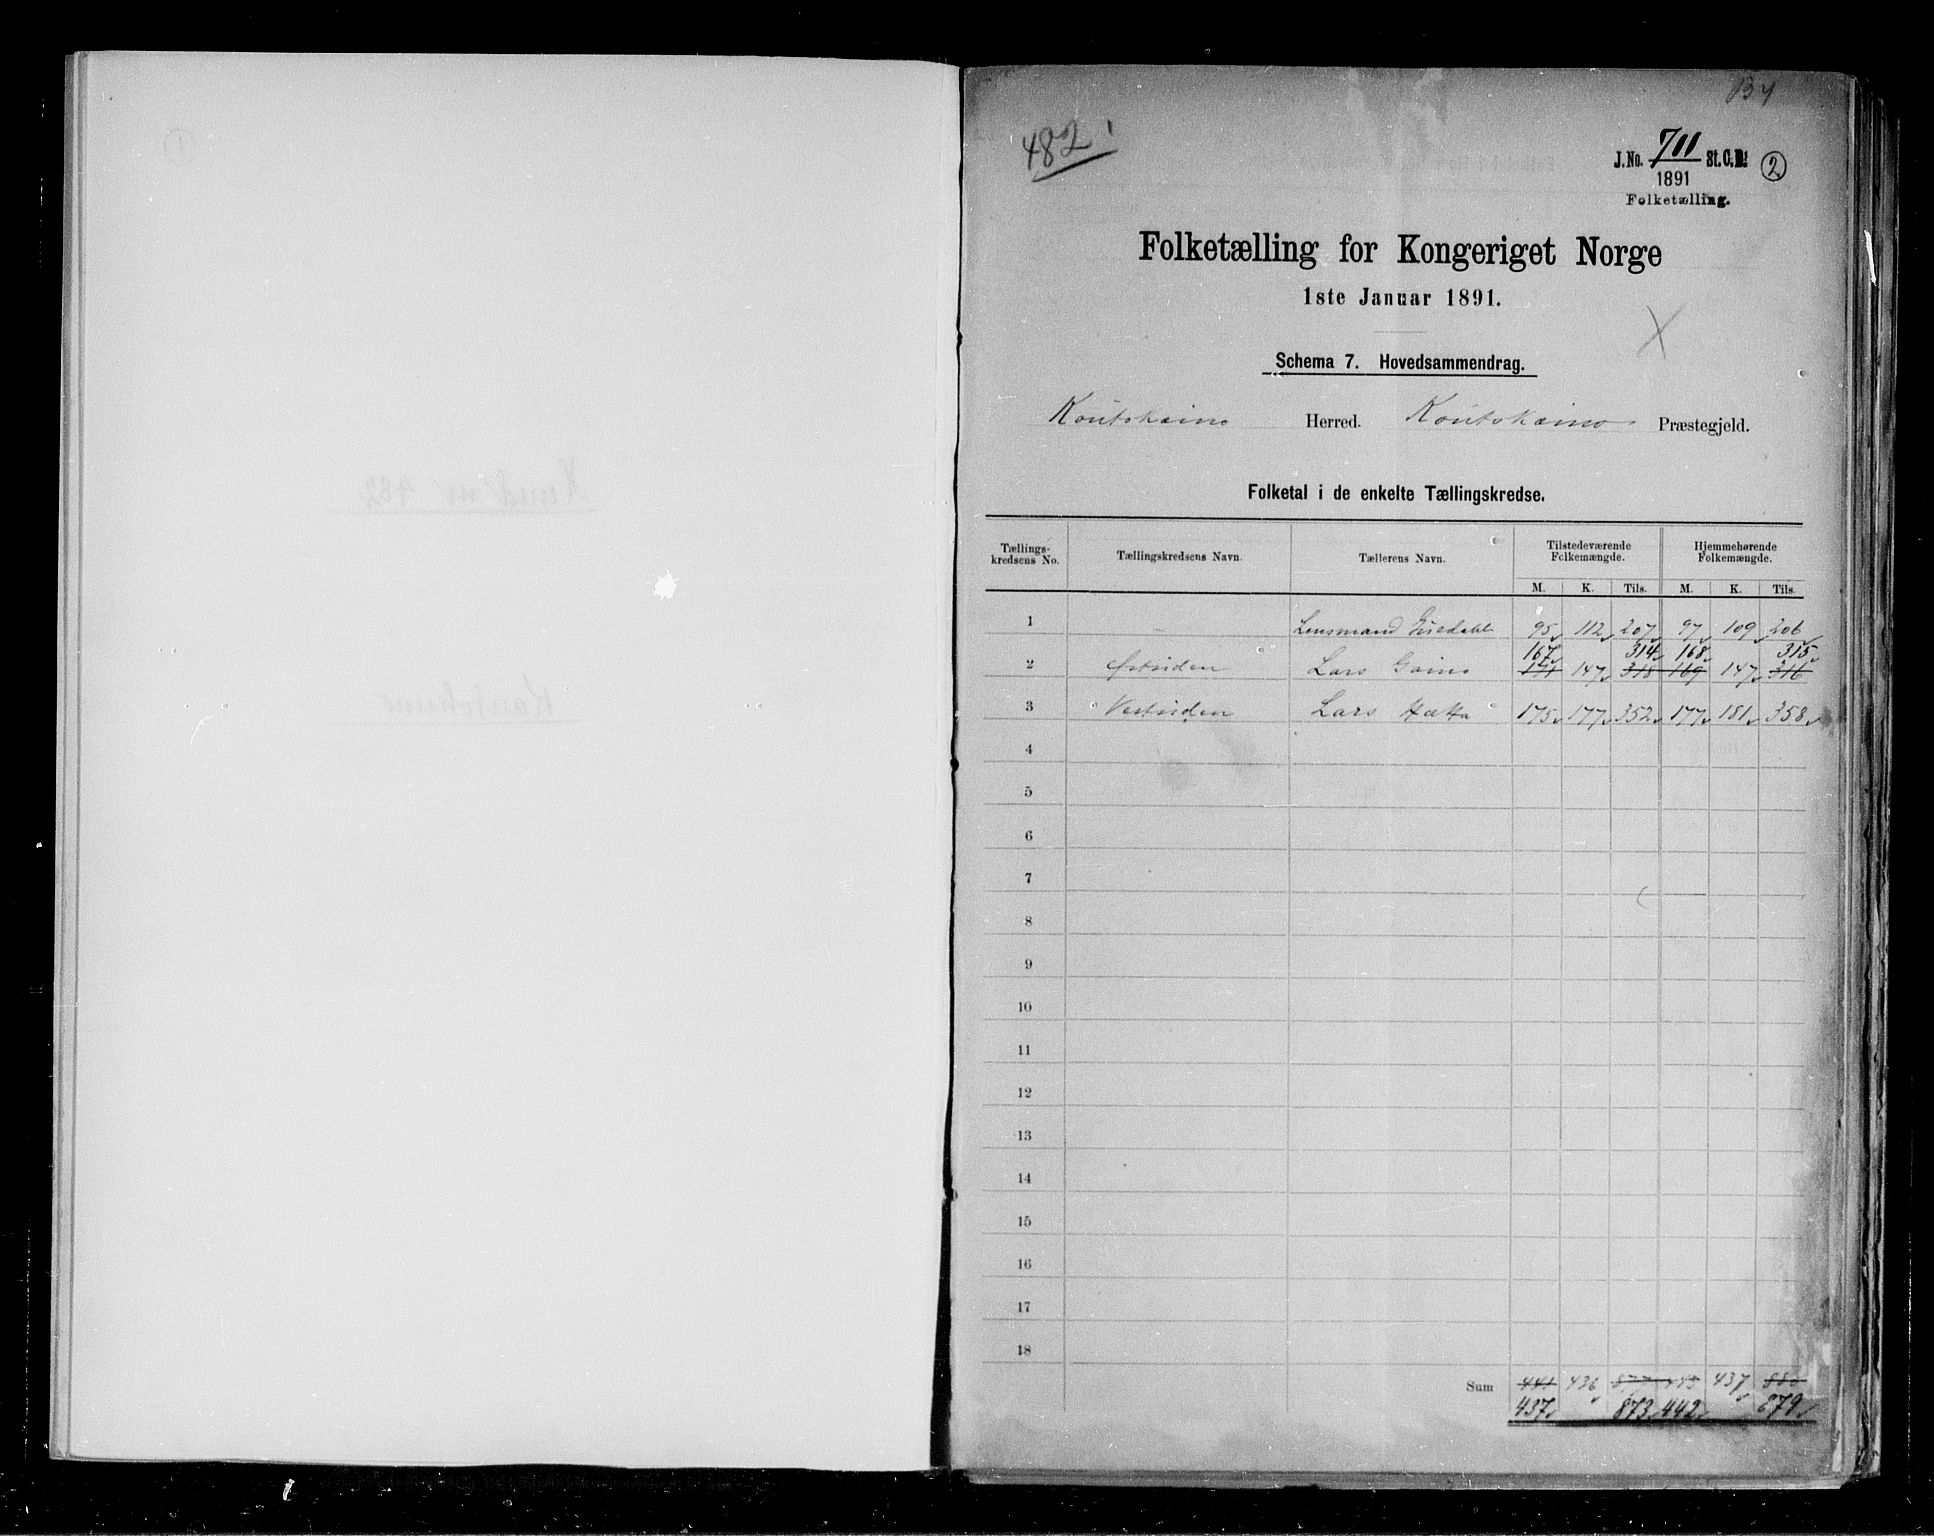 482
J. No. 711 St. C. B.
2
1891
Folketælling.
Folketælling for Kongeriget Norge
1ste Januar 1891.
Schema 7. Hovedsammendrag.
Koutokeino Herred. Koutokeino Præstegjeld.
Folketal i de enkelte Tællingskredse.
Tællings-kredsens No. Tællingskredsens Navn. Tællerens Navn. Tilstedeværende Folkemængde. Hjemmehørende Folkemængde.
M. K. Tils. M. K. Tils.
1 – Lensmand 95 112 207 97 109 206
167 314 168 315
2 Østsiden Lars Gaino 171 147 318 169 147 316
3 Vestsiden Lars Hætta 175 177 352 177 181 358
4
5
6
7
8
9
10
11
12
13
14
15
16
17
18
Sum 441 436 877 443 437 880
437 873 442 879